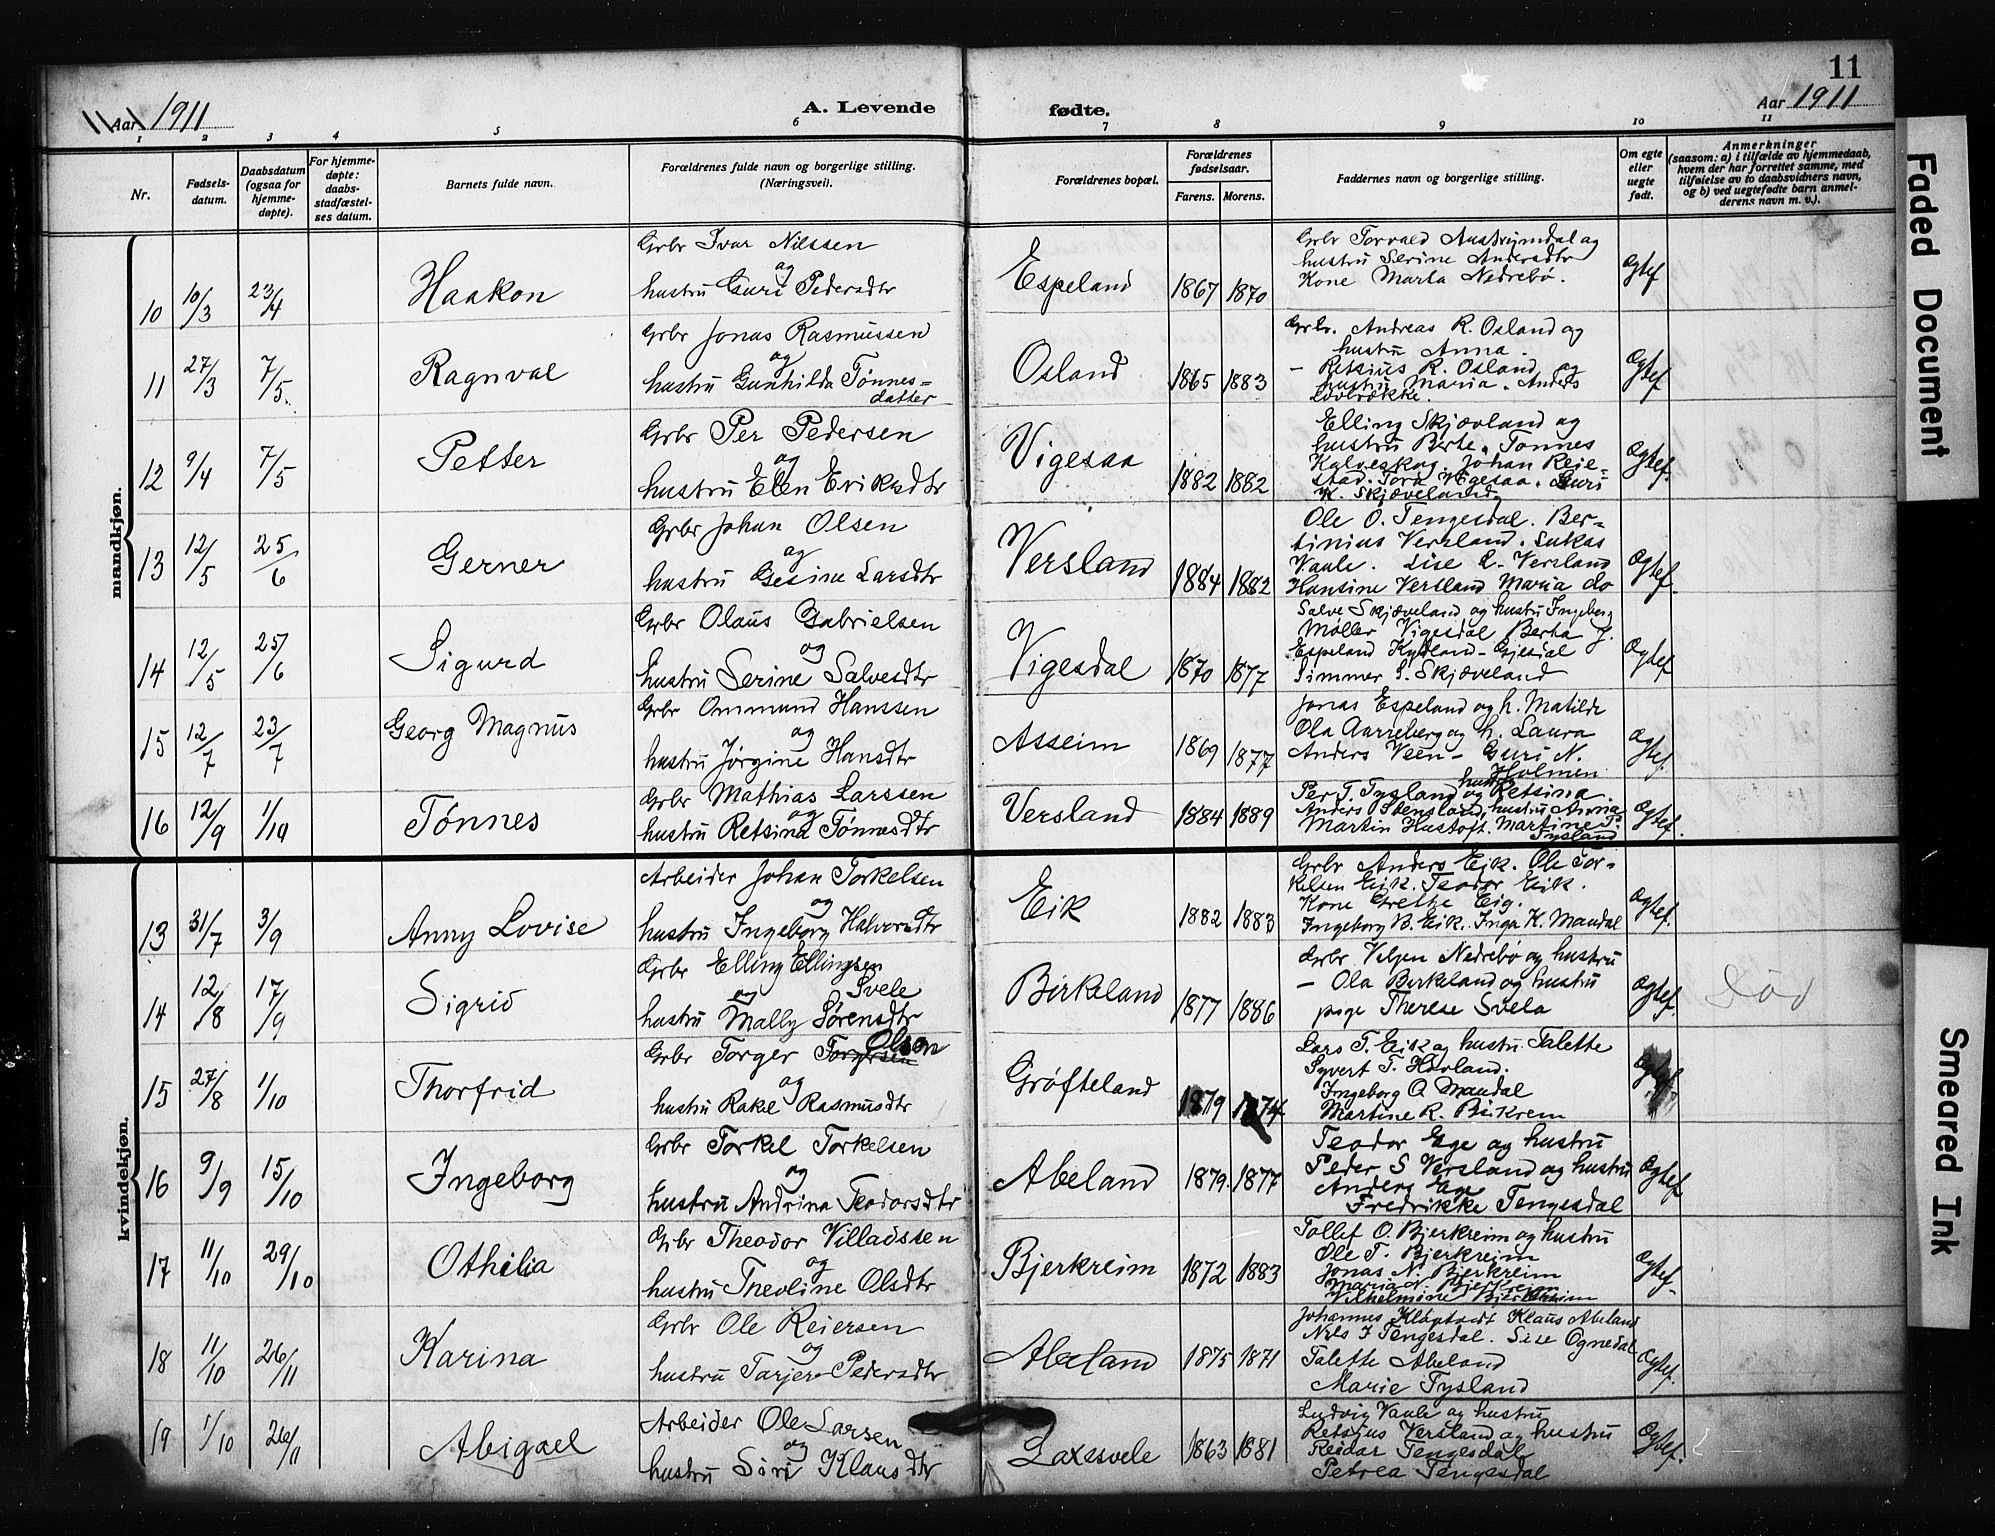 11
Aar 1911
A. Levende fødte.
Aar 1911
1 2 3 4 5 6 7 8 9 10 11
Nr.
Fødsels-
datum.
Daabsdatum
(ogsaa for
hjemme-
døpte).
For hjemme-
døpte:
daabs-
stadfæstel-
ses datum.
Barnets fulde navn.
Forældrenes fulde navn og borgerlige stilling.
(Næringsvei).
Forældrenes bopæl.
Forældrenes
fødselsaar.
Farens. Morens.
Faddernes navn og borgerlige stilling.
Om egte
eller
uegte
født.
Anmerkninger
(saasom: a) i tilfælde av hjemmedaab,
hvem der har forrettet samme, med
tilføielse av to daabsvidners navn,
og b) ved uegtefødte barn anmel-
derens navn m. v.).
mandkjøn.
10 10/3 23/4 Haakon
Grbr Ivar Nilssen
og
hustru Guri Pedersdtr
Espeland 1867 1870
Grbr Torvald Austrumdal og
hustru Serine Andersdtr
Kone Marta Nedrebø.
Ægtef
11 27/3 7/5. Ragnval
Grbr Jonas Rasmussen
og
hustru Gunhilda Tønnes=
datter
Osland 1865 1883
Grbr. Andreas R. Osland og
hustru Anna.
– Retsius R. Osland og
hustru Maria. Anders
Løvbrække.
Ægtef.
12 9/4 7/5 Petter
Grbr Per Pedersen
og
hustru Elen Eriksdtr
Vigesaa 1882 1882
Elling Skjævland og
hustru Berte. Tønnes
Kalveskog. Johan Reie=
stad. Tora Vigesaa. Guri
K. Skjæveland
Ægtef.
13 12/5 25/6 Gerner
Grbr Johan Olsen
og
hustru Gesine Larsdtr
Versland 1884 1882
Ole O. Tengesdal. Ber=
tinius Versland. Lukas
Vaule. Lise L. Versland
Hansine Versland Maria do
Ægtef.
14 12/5 25/6 Sigurd
Grbr Olaus Gabrielsen
og
hustru Serine Salvesdtr
Vigesdal 1870 1877
Salve Skjæveland og hustru Ingeberg
Møller Vigesdal Berta J.
Espeland Kydland – Gjesdal
Simmer S. Skjæveland
Ægtef.
15 12/7 23/7 Georg Magnus
Grbr Ommund Hanssen
og
hustru Jørgine Hansdtr
Asseim 1869 1877
Jonas Espeland og h. Matilde
Ola Aarreberg og h. Laura
Anders Veen – Guri N.
Holmen
Ægtef.
16 12/9 1/10 Tønnes
Grbr Mathias Larssen
og
hustru Retsine Tønnesdtr
Versland 1884 1889
hustru
Per T. Tysland og Retsina.
Anders Stensland, hustru Anna
Martin Hustoft. Martine T.
Tysland
Ægtef.
kvindekjøn.
13 31/7 3/9 Anny Lovise
Arbeider Johan Torkelsen
og
hustru Ingeborg Halvorsdtr
Eik 1882 1883
Grbr Anders Eik. Ole Tor=
kelsen Eik. Teodor Eik.
Kone Grethe Eig.
Ingeborg B. Eik. Inga K. Mandal
Ægtef.
14 12/8 17/9 Sigrid
Grbr Elling Ellingsen
og Svele
hustru Mally Sørensdtr
Birkeland 1877 1886
Grbr Veljen Nedrebø og hustru
– Ola Birkeland og hustru
pige Therese Svela
Ægtef. Død
15 27/8 1/10 Thorfrid
Olsen
Grbr Torger Torgersen
og
hustru Rakel Rasmusdtr
Grøfteland 1879 1874
Lars T. Eik og hustru Talette
Syvert T. Havland.
Ingeborg O Mandal
Martine R. Birkrem
Ægtef
16 9/9 15/10 Ingeborg
Grbr Torkel Torkelsen
og
hustru Andrina Teodorsdtr
Abeland 1879. 1877
Teodor Ege og hustru
Peder S Versland og hustru
Anders Ege
Fredrikke Tengesdal
Ægtef
17 11/10 29/10 Othilia
Grbr Theodor Villadssen
og
hustru Theoline Olsdtr
Bjerkreim 1872 1883
Tollef O. Bjerkreim og hustru
Ole T. Bjerkreim
Jonas N. Bjerkreim
Maria N. Bjerkreim
Vilhelmine Bjerkreim
Ægtef.
18 11/10 26/11 Karina
Grbr Ole Reiersen
og
hustru Tarjer Pedersdtr
Abeland 1875 1871
Johannes Kløgtvedt Klaus Abeland
Nils J Tengesdal. Lise Ognedal
Talette Abeland
Marie Tysland
Ægtef.
19 1/10 26/11 Abigael
Arbeider Ole Larsen
og
hustru Siri Klausdtr
Laxesvele 1863 1881
Ludvig Vaule og hustru
Retsius Versland og hustru
Reidar Tengesdal
Petrea Tengesdal
Ægtef.
Faded Document
Smeared Ink